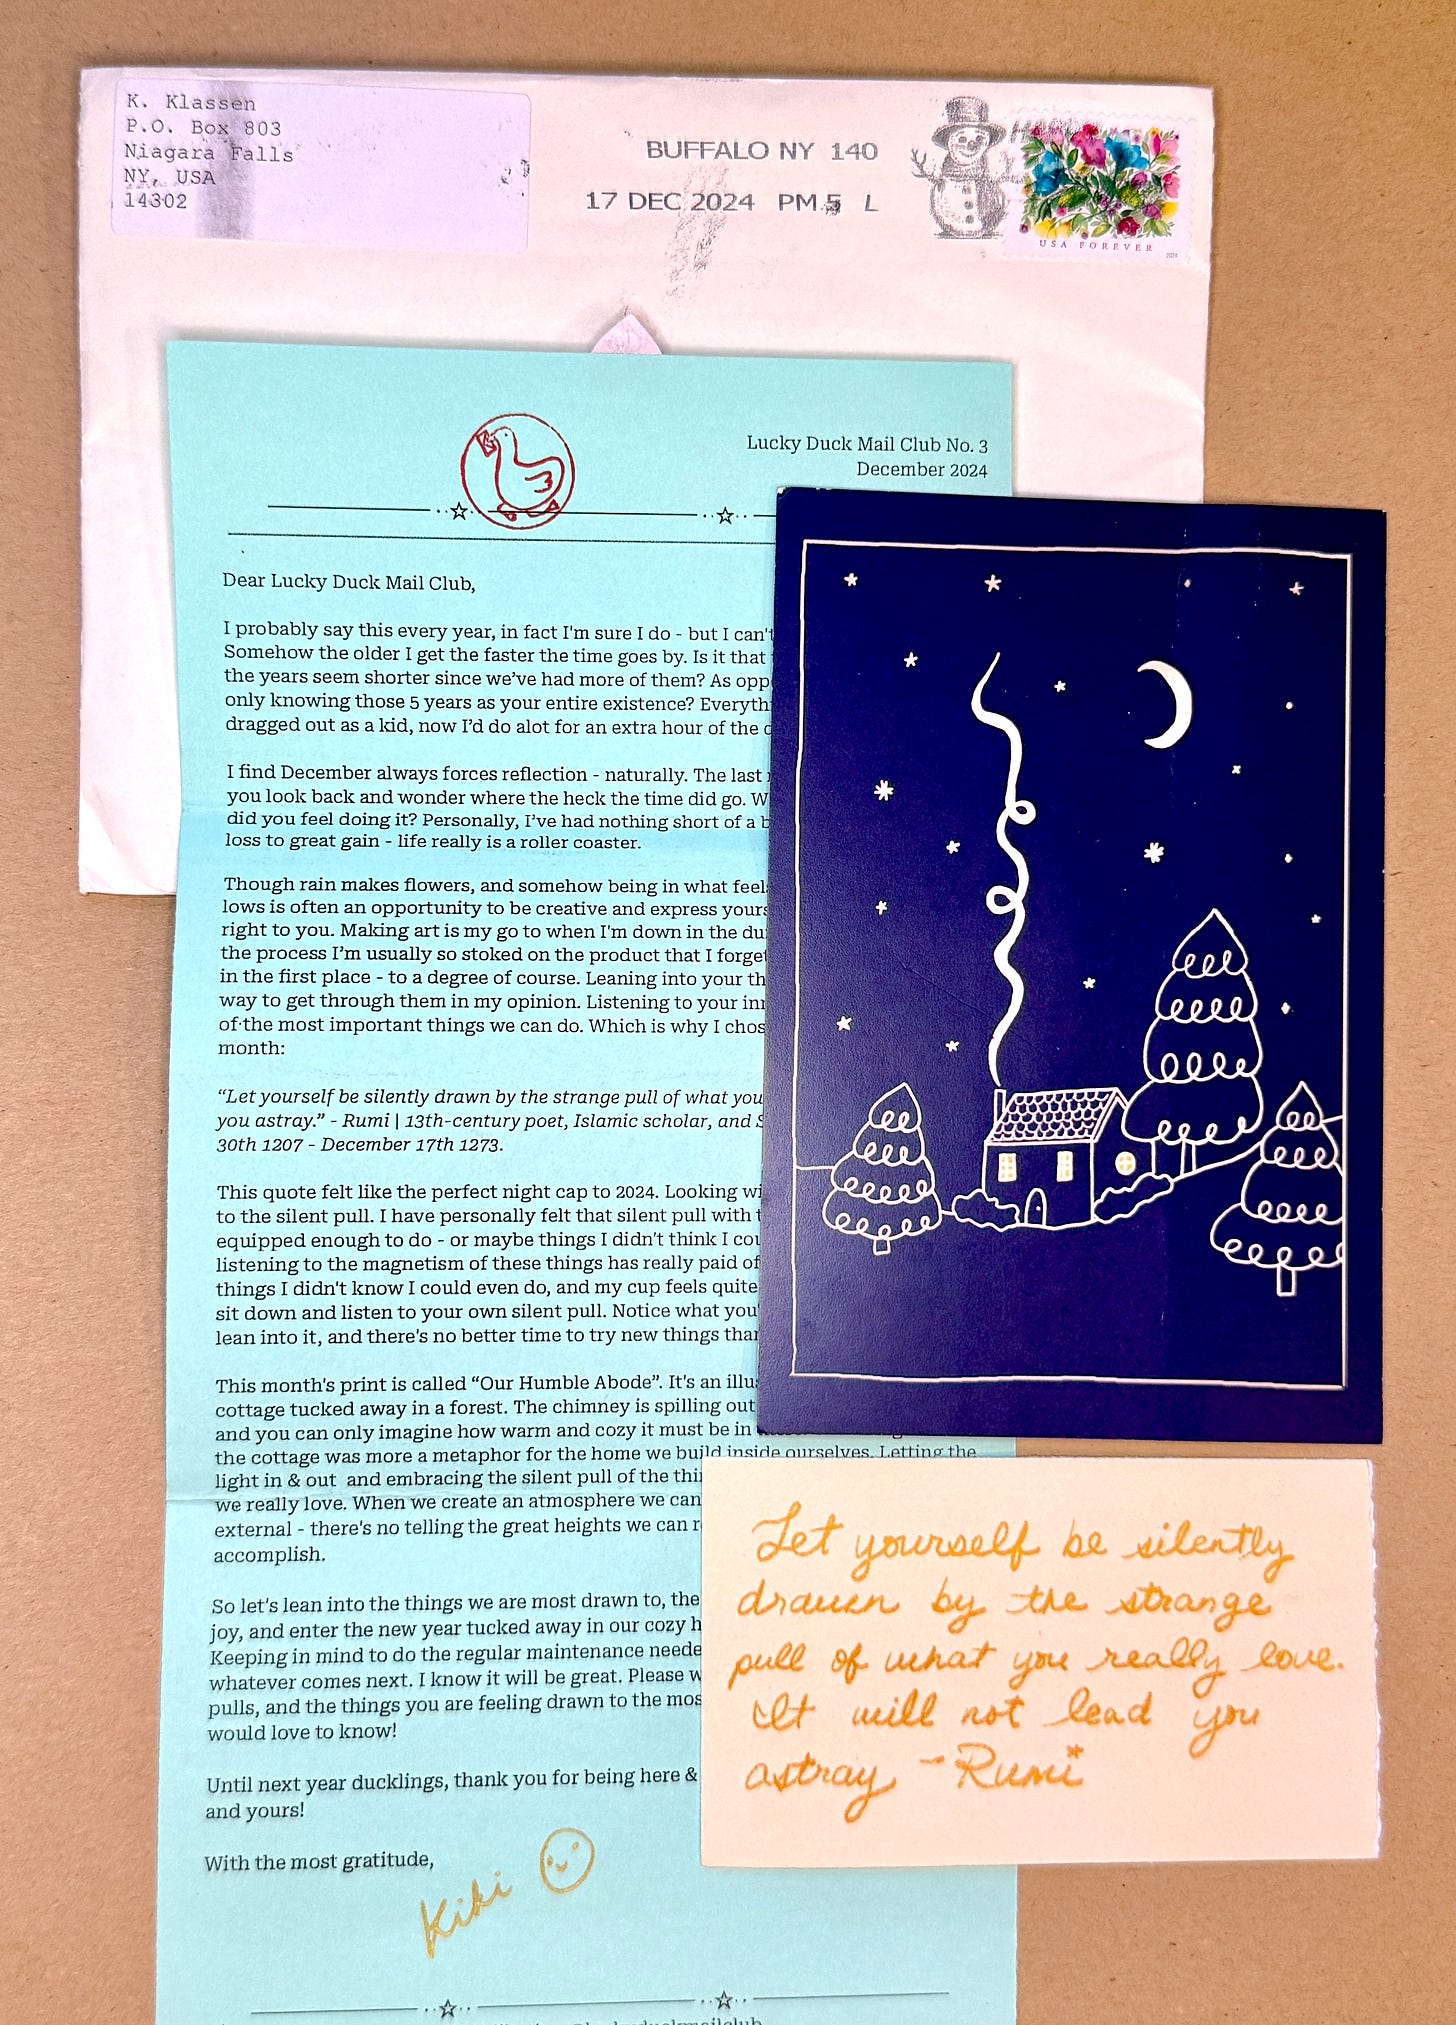 K. Klassen
P.O. Box 803
Niagara Falls
NY, USA
14302
BUFFALO NY 140
17 DEC 2024 PM 5 L
USA FOREVER
2024
Lucky Duck Mail Club No. 3
December 2024
Dear Lucky Duck Mail Club,
I probably say this every year, in fact I'm sure I do - but I can't
Somehow the older I get the faster the time goes by. Is it that
the years seem shorter since we've had more of them? As opp
only knowing those 5 years as your entire existence? Everyth
dragged out as a kid, now I'd do alot for an extra hour of the
I find December always forces reflection - naturally. The last
you look back and wonder where the heck the time did go. W
did you feel doing it? Personally, I've had nothing short of a b
loss to great gain - life really is a roller coaster.
Though rain makes flowers, and somehow being in what feel
lows is often an opportunity to be creative and express yours
right to you. Making art is my go to when I'm down in the du
the process I'm usually so stoked on the product that I forget
in the first place - to a degree of course. Leaning into your th
way to get through them in my opinion. Listening to your inn
of the most important things we can do. Which is why I chos
month:
“Let yourself be silently drawn by the strange pull of what you
you astray.” - Rumi | 13th-century poet, Islamic scholar, and S
30th 1207 - December 17th 1273.
This quote felt like the perfect night cap to 2024. Looking wi
to the silent pull. I have personally felt that silent pull with
equipped enough to do - or maybe things I didn't think I cou
listening to the magnetism of these things has really paid of
things I didn't know I could even do, and my cup feels quite
sit down and listen to your own silent pull. Notice what you'
lean into it, and there's no better time to try new things than
This month's print is called “Our Humble Abode”. It's an illu
cottage tucked away in a forest. The chimney is spilling out
and you can only imagine how warm and cozy it must be in
the cottage was more a metaphor for the home we build inside ourselves. Letting the
light in & out and embracing the silent pull of the thi
we really love. When we create an atmosphere we can
external - there's no telling the great heights we can r
accomplish.
So let's lean into the things we are most drawn to, the
joy, and enter the new year tucked away in our cozy h
Keeping in mind to do the regular maintenance neede
whatever comes next. I know it will be great. Please w
pulls, and the things you are feeling drawn to the mos
would love to know!
Until next year ducklings, thank you for being here &
and yours!
With the most gratitude,
Kiki
Let yourself be silently
drawn by the strange
pull of what you really love.
It will not lead you
astray - Rumi